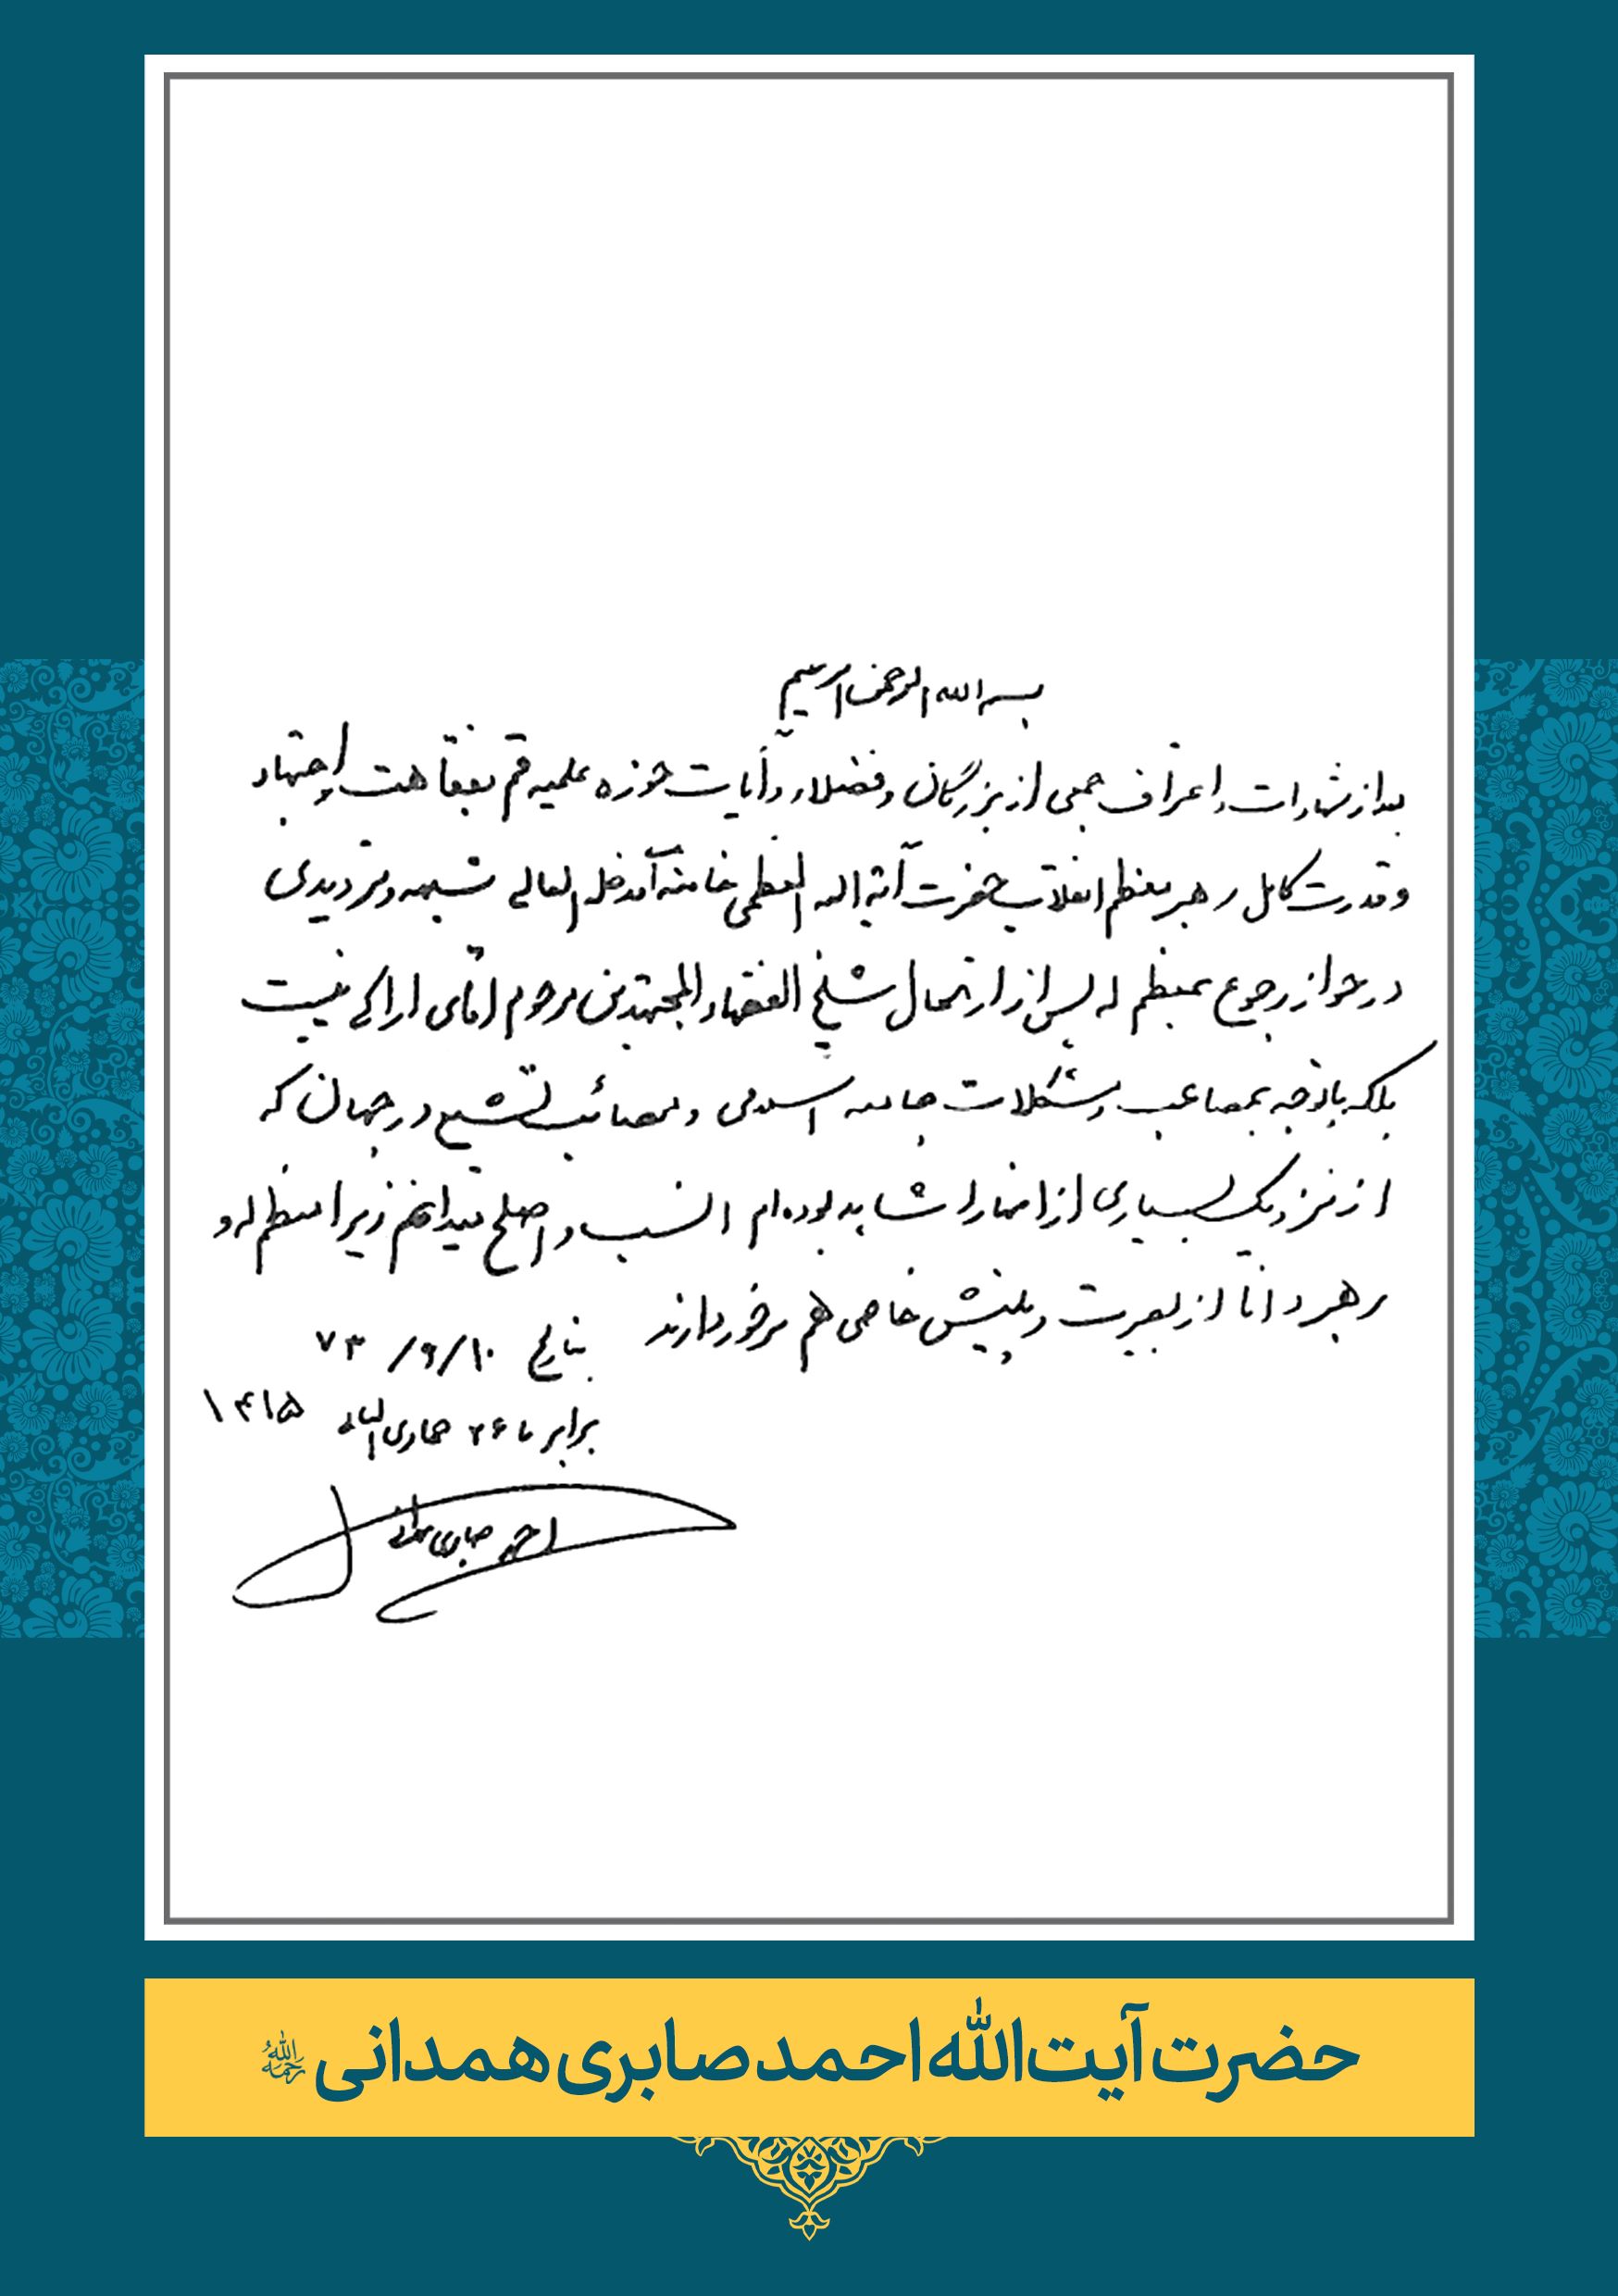 بسم الله الرحمن الرحیم
بعد از شهادات و اعتراف جمعی از بزرگان و فضلاء و آیات حوزه علمیه قم بفقاهت و اجتهاد
و قدرت کامل رهبر معظم انقلاب حضرت آیة الله العظمی خامنه‌ای مدظله العالی شبهه و تردیدی
در جواز رجوع بمعظم له پس از ارتحال شیخ الفقهاء و المجتهدین مرحوم آقای اراکی نیست
بلکه با توجه بمصاعب و مشکلات جامعه اسلامی و مصائب تشیع در جهان که
از نزدیک بسیاری از آنها را شاهد بوده‌ام انسب و اصلح میدانم زیرا معظم له و
رهبر دانا از بصیرت و بینش خاصی هم برخوردارند
بتاریخ ۱۰/۹/۷۳
برابر با ۲۶ جمادی الثانی ۱۴۱۵
احمد صابری همدانی
حضرت آیت‌الله احمد صابری همدانی رحمه‌الله